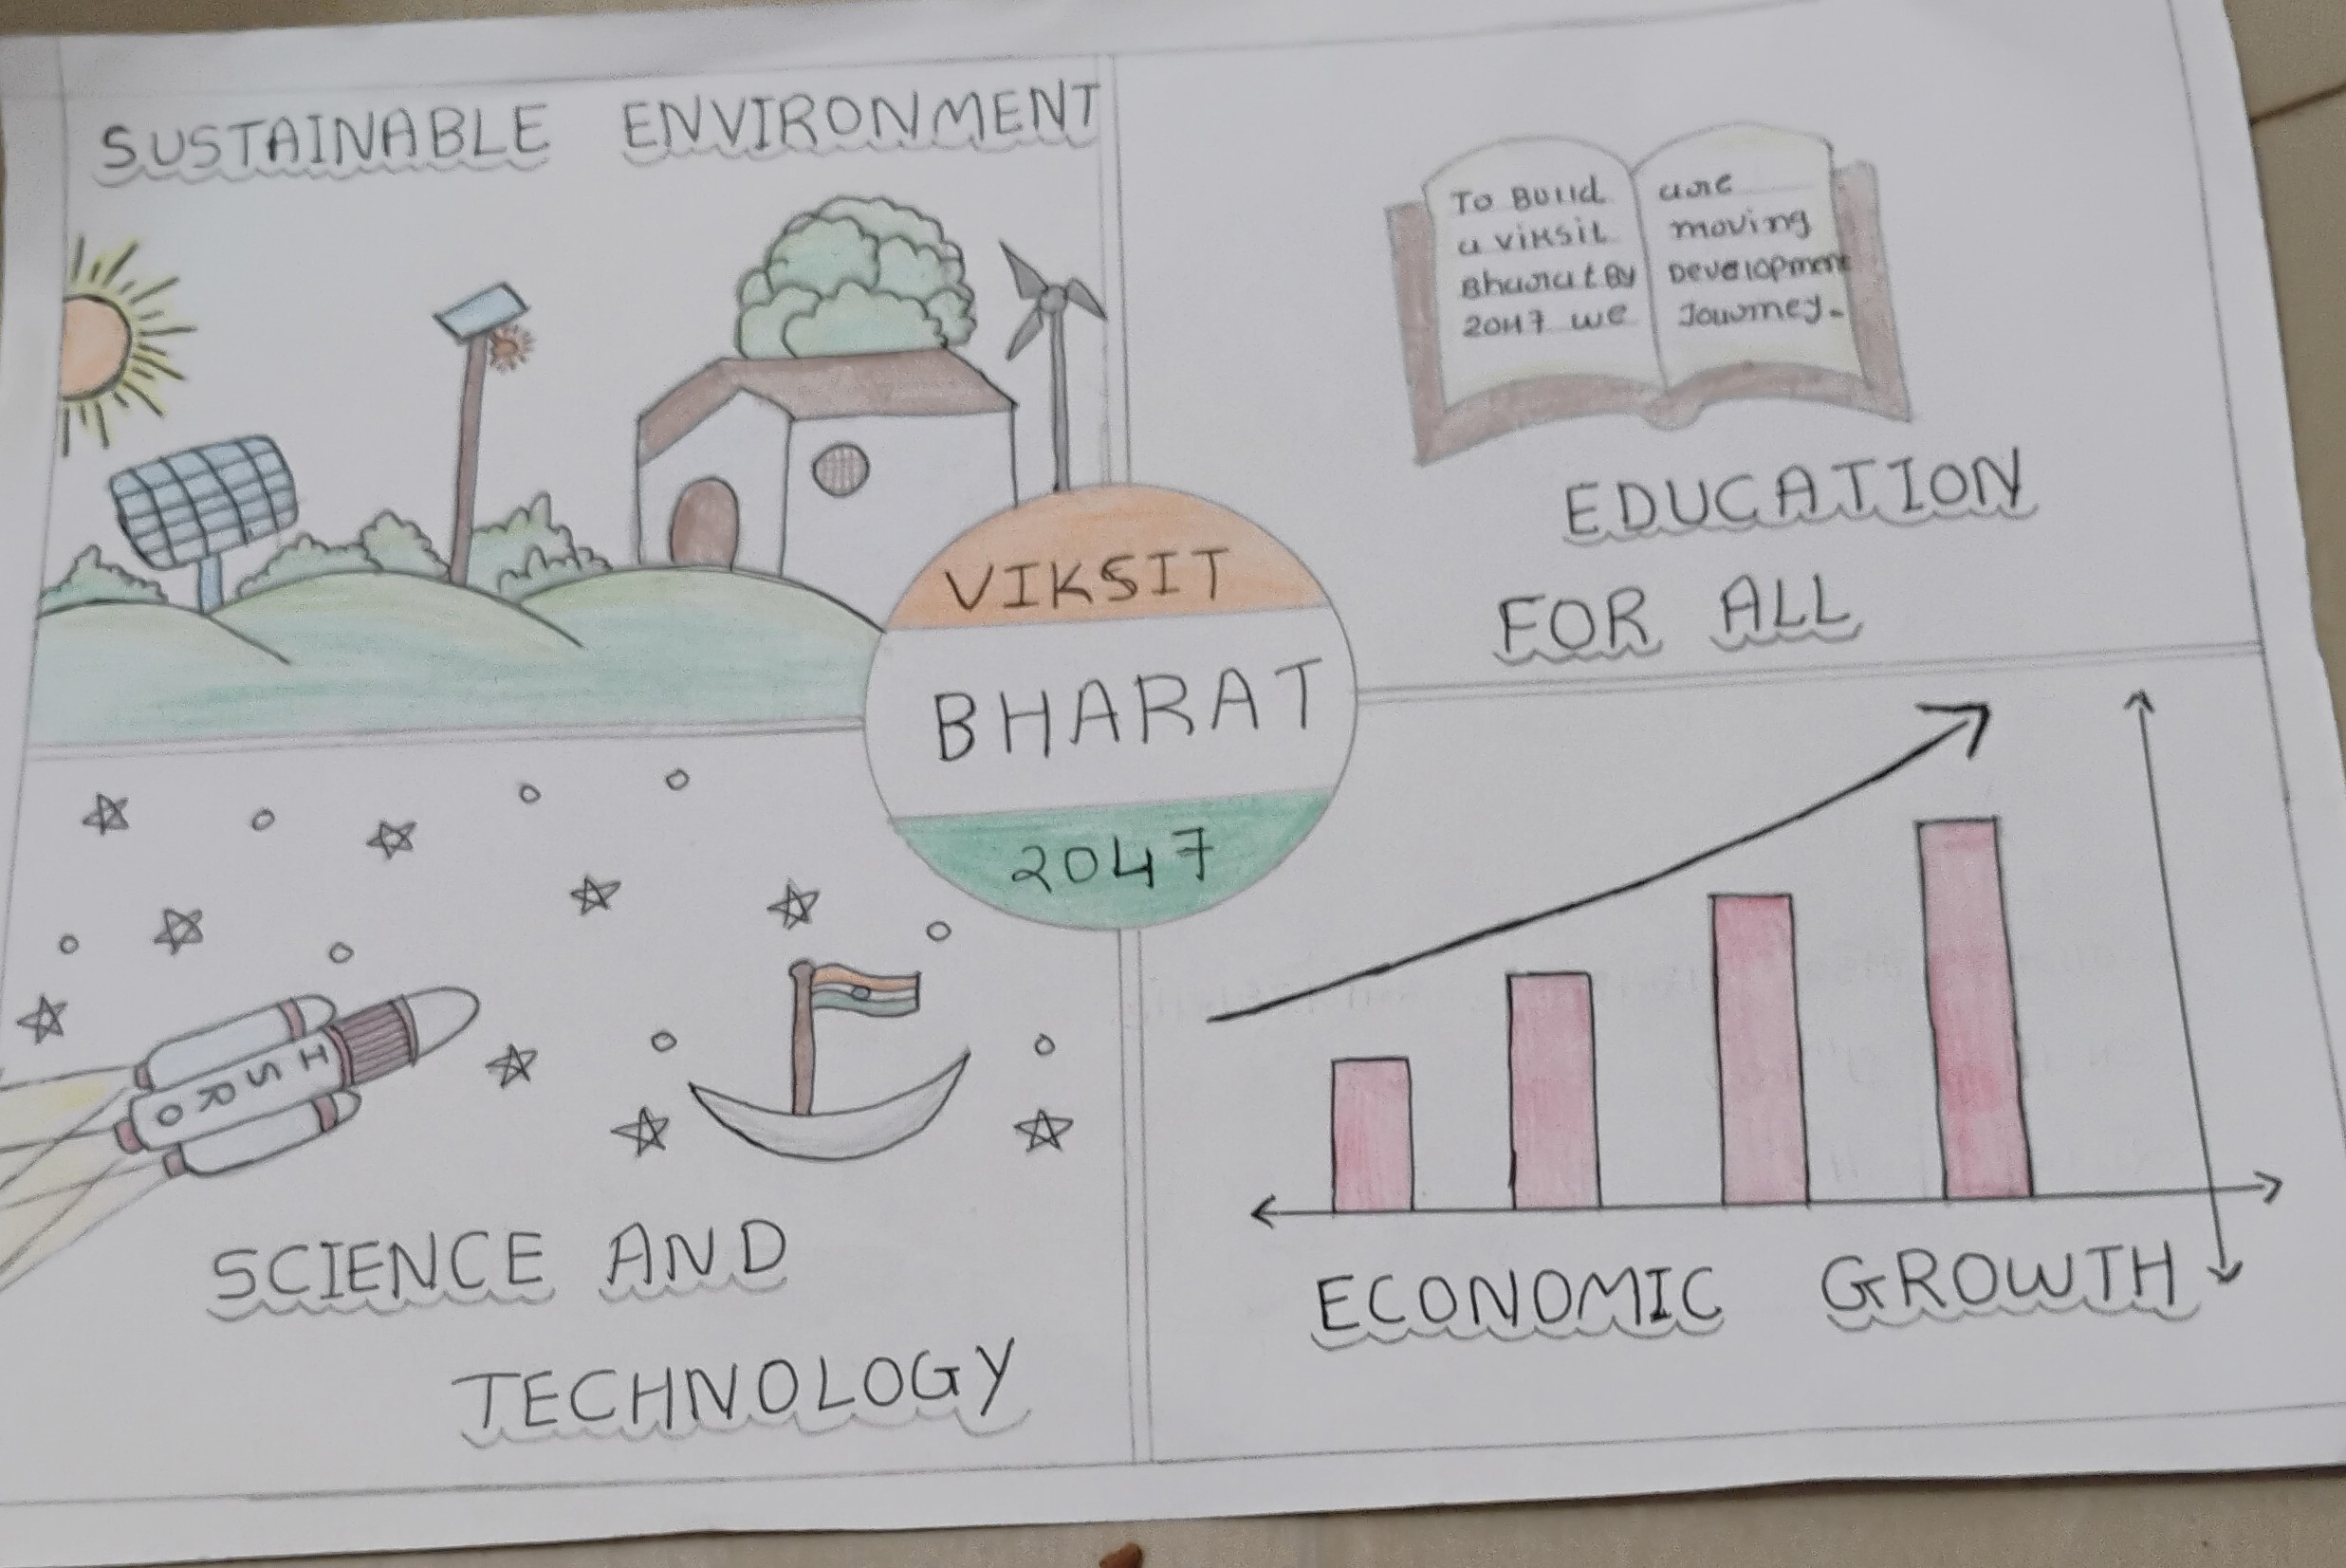 SUSTAINABLE ENVIRONMENT
To Build
a viksit
Bharat By
2047 we
are
moving
Development
Journey.
EDUCATION
FOR ALL
VIKSIT
BHARAT
2047
ISRO
SCIENCE AND
TECHNOLOGY
ECONOMIC GROWTH